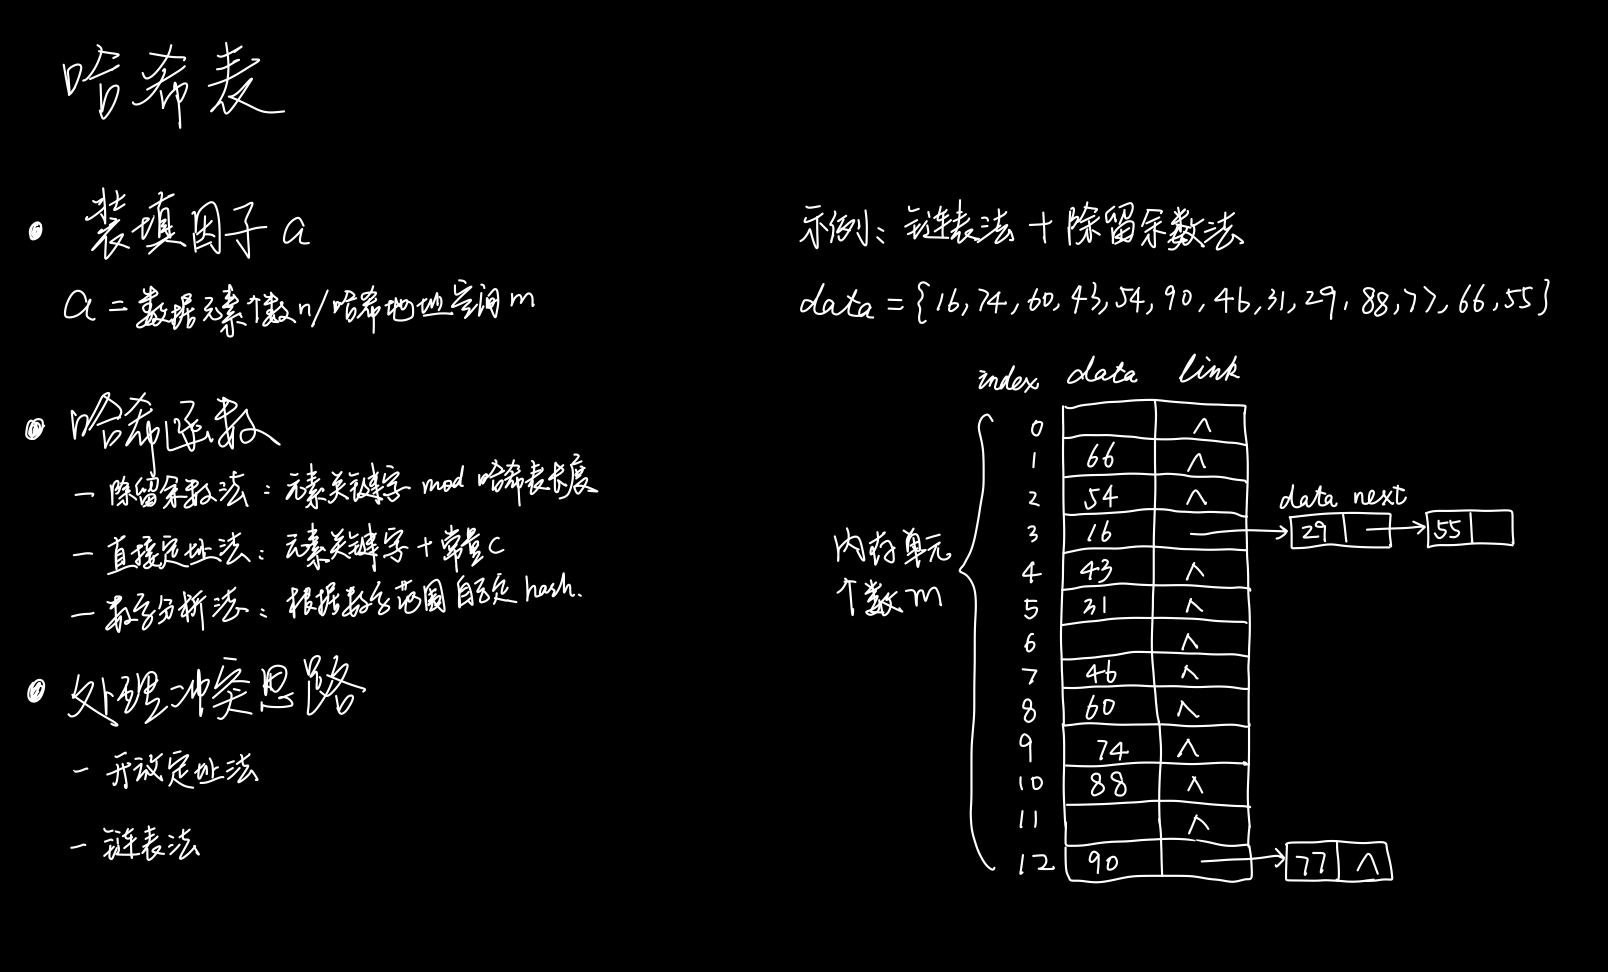 哈希表
装填因子 a
a = 数据元素个数n/哈希地址空间m
哈希函数
- 除留余数法：元素关键字 mod 哈希表长度
- 直接定址法：元素关键字+常量c
- 数字分析法：根据数字范围自定 hash.
处理冲突思路
- 开放定址法
- 链表法
示例：链表法 + 除留余数法
data = {16,74,60,43,54,90,46,31,29,88,77,66,55}
index data link
0 ∧
1 66 ∧
2 54 ∧
data next
3 16 29 55
4 43 ∧
5 31 ∧
6 ∧
7 46 ∧
8 60 ∧
9 74 ∧
10 88 ∧
11 ∧
12 90 77 ∧
内存单元
个数m